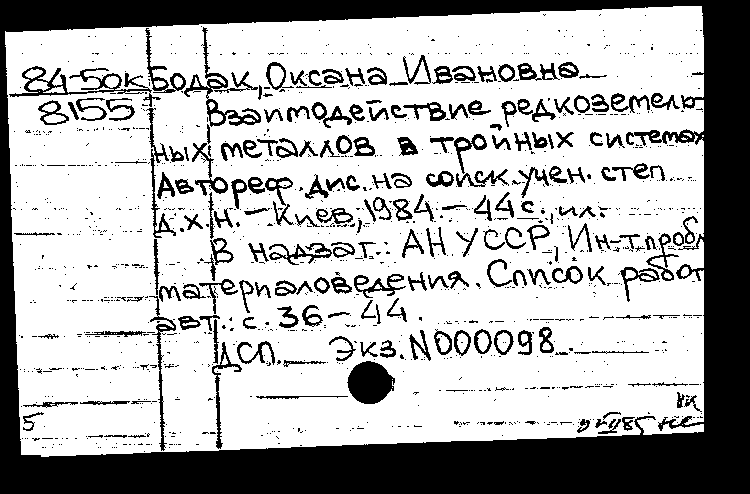 84-5ок Бодак, Оксана Ивановна
8155 Взаимодействие редкоземель-
ных металлов в тройных системах
Автореф. дис. на соиск. учен. степ
д.х.н. – Киев, 1984. – 44 с., ил.
В надзаг.: АН УССР, Ин-т пробл
материаловедения. Список работ
авт.: с. 36 – 44.
ДСП. Экз. N000098.
5